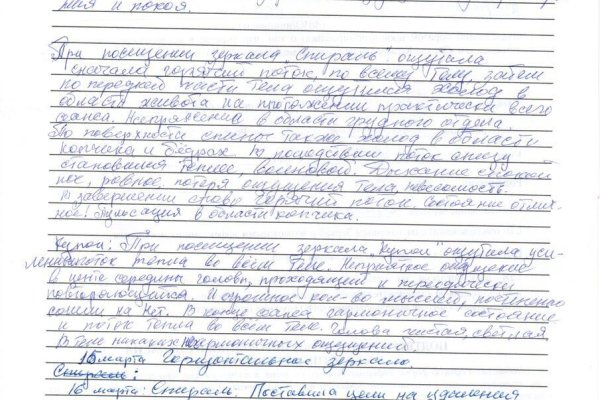 ния и покоя.
При посещении зеркала "Спираль" ощутила
сначала горячий поток, по всему телу, затем
по передней части тела ощущался холод в
области живота на протяжении практически всего
сеанса. Напряжение в области грудного отдела.
По поверхности спины также холод в области
копчика и бедрах. В последствии поток снизу
становился теплее, волновой. Дыхание спокой
ное, ровное, потеря ощущения тела, невесомость.
В завершении снова горячий поток. Состояние отлич-
ное. Пульсация в области копчика.
Купол: При посещении зеркала "Купол" ощутила уси-
ление поток тепла во всем теле. Неприятное ощущение
в центе середины головы, проходящий и периодически
повторяющийся. И огромное кол-во мыслей, постепенно
сошли на нет. В конце сеанса гармоничное состояние
и поток тепла во всем теле. Голова чистая, светлая
В теле никаких негармоничных ощущений.
15 марта Горизонтальное зеркало.
Спираль:
16 марта: Спираль. Поставила цели на